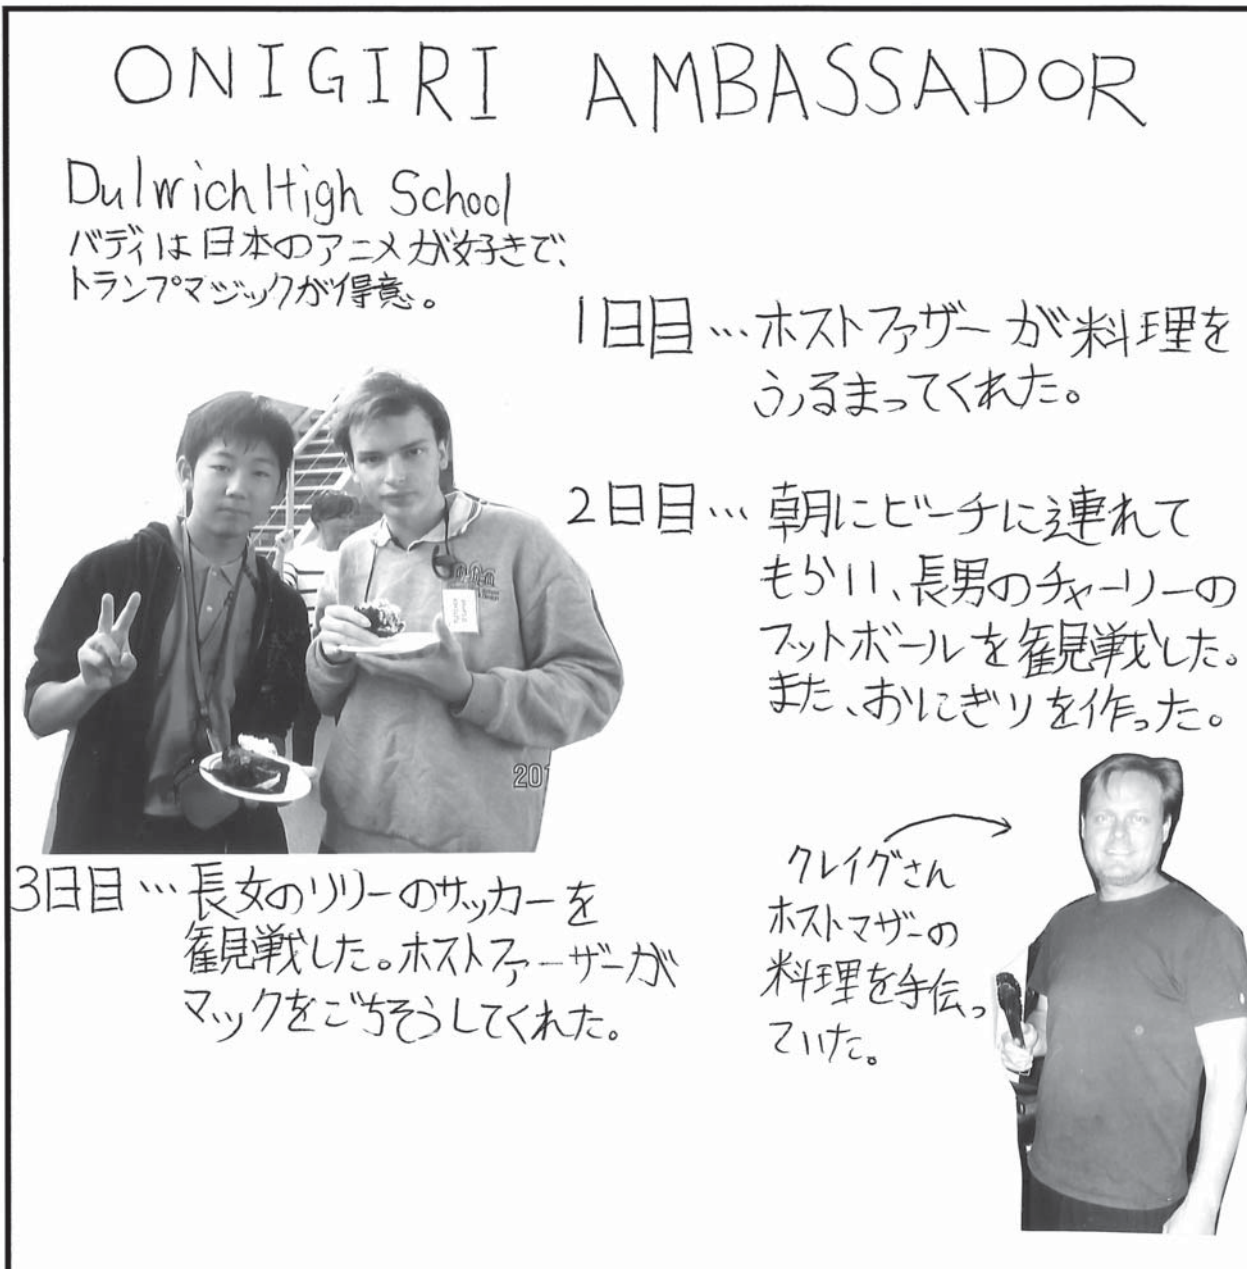 ONIGIRI AMBASSADOR
Dulwich High School
バディは日本のアニメが好きで、
トランプマジックが得意。
1日目…ホストファザーが料理を
ふるまってくれた。
2日目…朝にビーチに連れて
もらい、長男のチャーリーの
フットボールを観戦した。
また、おにぎりを作った。
201
3日目…長女のリリーのサッカーを
観戦した。ホストファーザーが
マックをごちそうしてくれた。
クレイグさん
ホストマザーの
料理を手伝っ
ていた。